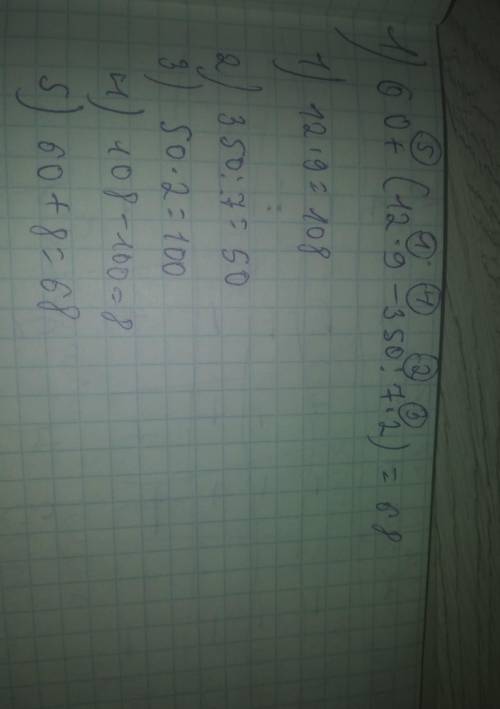 1) 60 + (12 · 9 - 350 : 7 · 2) = 68
⑤ ① ④ ② ③
1) 12 · 9 = 108
2) 350 : 7 = 50
3) 50 · 2 = 100
4) 108 - 100 = 8
5) 60 + 8 = 68